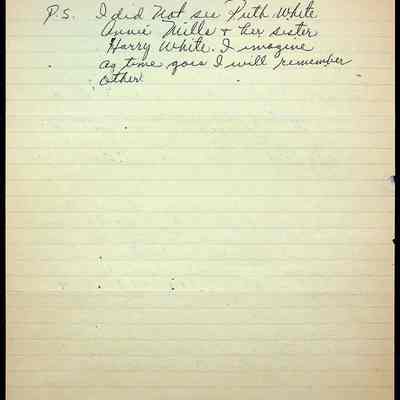 P.S. I did Not see Ruth White
Annie Mills + her sister
Harry White. I imagine
as time goes I will remember
other